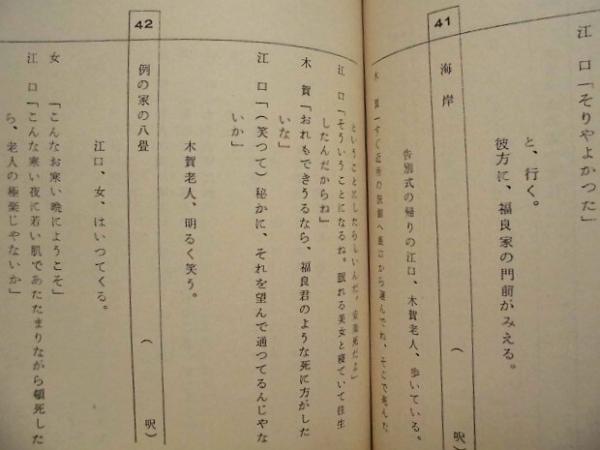 江　口「そりやよかつた」
と、行く。
彼方に、福良家の門前がみえる。
41　海　岸　（　呎）
告別式の帰りの江口、木賀老人、歩いている。
木　賀「すぐ近所の旅館へ裏口から運んでね、そこで死んだ
ということにしたらしいんだ。安楽死だよ」
江　口「そういうことになるね。眠れる美女と寝ていて往生
したんだからね」
木　賀「おれもできうるなら、福良君のような死に方がした
いな」
江　口「（笑つて）秘かに、それを望んで通つてるんじやな
いか」
木賀老人、明るく笑う。
42　例の家の八畳　（　呎）
江口、女、はいつてくる。
女　「こんなお寒い晩にようこそ」
江　口「こんな寒い夜に若い肌であたたまりながら頓死した
ら、老人の極楽じやないか」